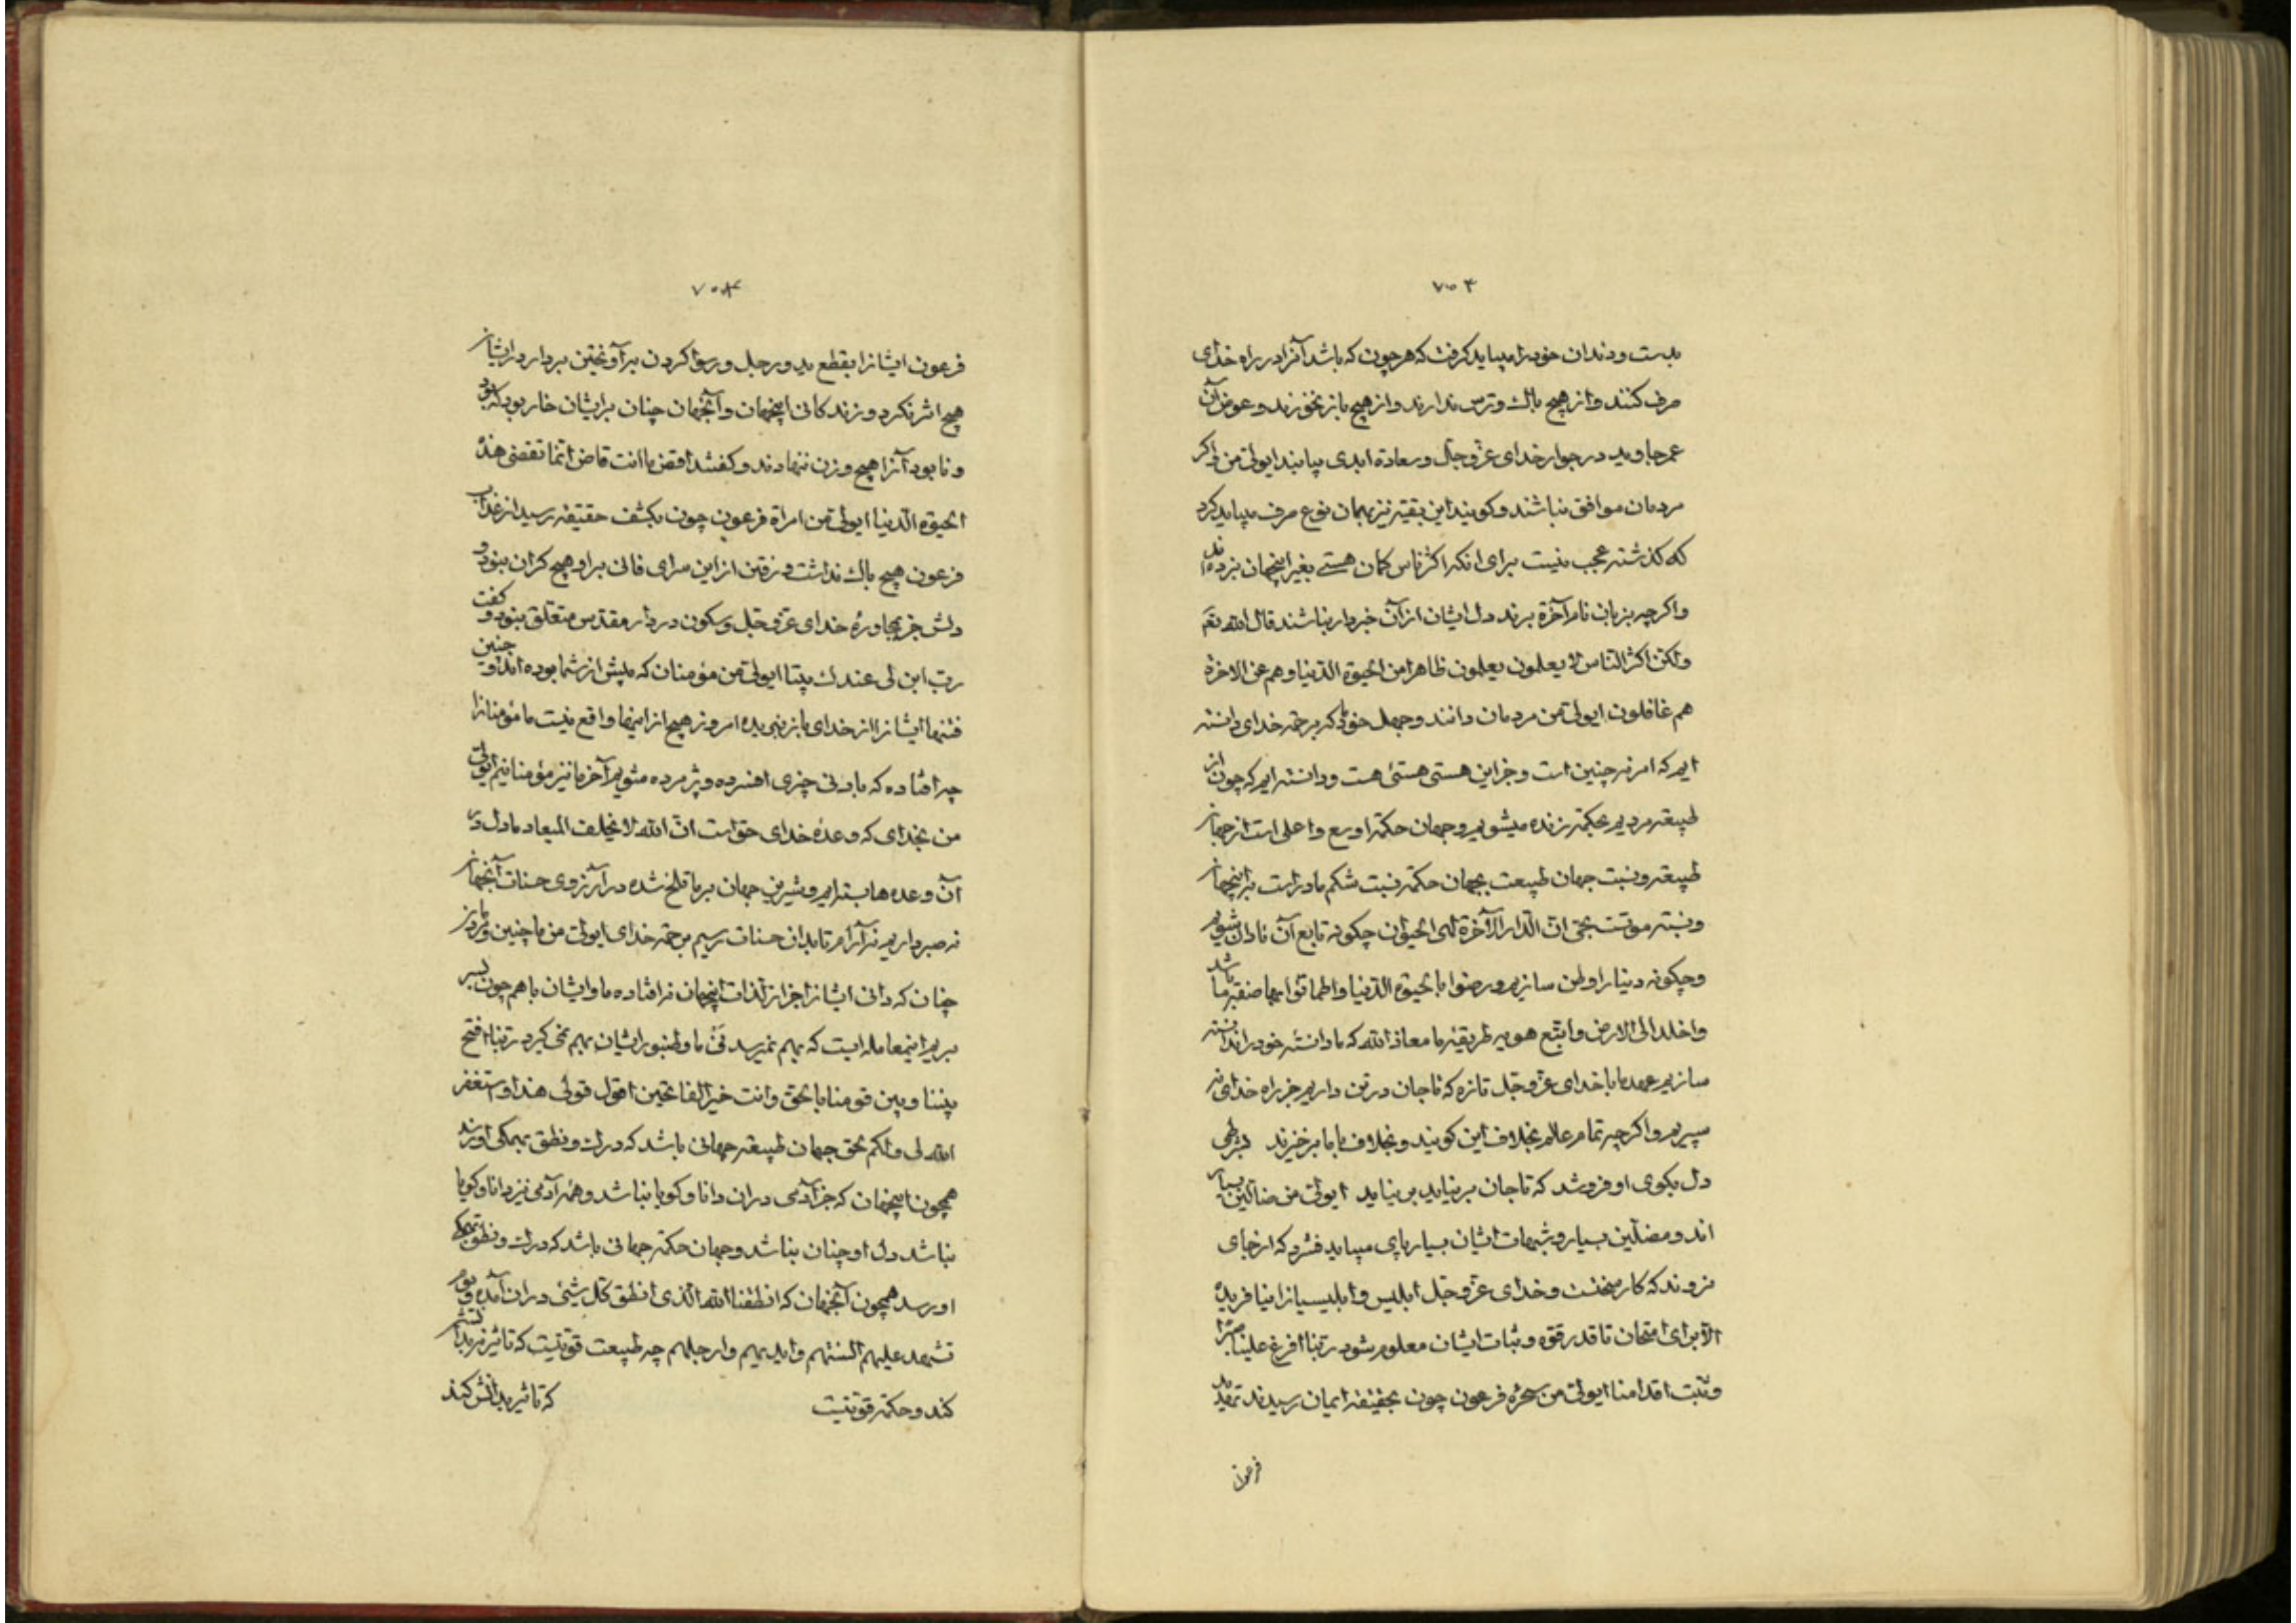 ۷۰۳
بدست و دندان خود را میباید گرفت که هر چون که باشد آنرا در راه خدای
صرف کنند و از هیچ باک و ترس ندارند و از هیچ باز نخورند و عوض آن
عمر جاوید در جوار خدای عزّ و جلّ و سعادة ابدی بیابند ایولیّ من و اگر
مردمان موافق نباشند و گویند این بقیه نیز بهمان نوع صرف میباید کرد
که گذشته عجب نیست برای انکه اکثر ناس گمان هستی بغیر اینجهان نبرده‌اند
و اگر چه بزبان نام آخرة برند دل ایشان از آن خبردار نباشند قال الله تع
ولکن اکثر الناس لا یعلمون یعلمون ظاهرا من الحیوة الدنیا و هم عن الاخرة
هم غافلون ایولیّ من مردمان دانند و جهل خود که برحمة خدای دانسته
ایم که امر نه چنین است و جز این هستی هستئ هست و دانسته ایم که چون از
طبیعة مردیم بحکمة زنده میشویم و جهان حکمة اوسع و اعلی است از جهان
طبیعة و نسبت جهان طبیعت بجهان حکمة نسبت شکم مادر است بر اینجهان
و نسبته موتست بحی انّ الدّار الآخرة لهی الحیوان چگونه تابع آن نادان شویم
و چگونه دنیا را وطن سازیم و رضوا بالحیوة الدنیا و اطمانّوا بها صفة ما باشد
و اخلد الی الارض و اتّبع هویه طریقهٔ ما معاذ الله که ما دانسته خود را ندانسته
سازیم عهد ما با خدای عزّ و جلّ تازه که تا جان در تن داریم جز راه خدای نه
سپریم و اگر چه تمام عالم بخلاف این گویند و بخلاف ما با ما برخیزند
دل بکوی او فروشد که تا جان بر نیاید بر نیاید ایولیّ من ضالّین بسیار
اند و مضلّین بسیار و شبهات ایشان بسیار پای میباید فشرد که از جای
نروند که کار سختست و خدای عزّ و جلّ ابلیس و ابلیسیان را نیافریده
الّا برای امتحان تا قدر قوّه و ثبات ایشان معلوم شود ربّنا افرغ علینا صبرا
و ثبّت اقدامنا ایولیّ من سحرهٔ فرعون چون بحقیقة ایمان رسیدند تهدید
فرعون
۷۰۴
فرعون ایشانرا بقطع ید و رجل و رسوا کردن بر آویختن بر دار در ایشان
هیچ اثر نکرد و زندگانی اینجهان و آنجهان چنان بر ایشان خار بود که بود
و نابود آنرا هیچ وزن ننهادند و گفتند اقض ما انت قاض انّما تقضی هذه
الحیوة الدّنیا ایولیّ من امراة فرعون چون بکشف حقیقة رسید از عذاب
فرعون هیچ باک نداشت و رفتن از این سرای فانی بر او هیچ گران نبود و
دلش جز بمجاورهٔ خدای عزّ و جلّ و سکون در دار مقدّس متعلّق نبود و گفت
ربّ ابن لی عندک بیتا ایولیّ من مؤمنان که پیش از شما بوده اند و چنین
فتنها ایشانرا از خدای باز نبریده امروز هیچ از اینها واقع نیست ما مؤمنانرا
چه افتاده که بادنی چیزی افسرده و پژمرده میشویم آخر ما نیز مؤمنانیم ایولیّ
من بخدای که وعدهٔ خدای حق است انّ الله لا یخلف المیعاد ما دل در
آن وعده ها بسته ایم و شیرین جهان بر ما تلخ شده در آرزوی حسنات آنجهان
نه صبر داریم نه آرام تا بدان حسنات رسیم برحمة خدای ایولیّ من ما چنین و
چنان که دانی ایشانرا جز از لذات اینجهان نه افتاده ما و ایشان با هم چون بسر
بریم اینمعامله ایست که بهم نمیرسد نی ما و طنبور ایشان بهم نمی گیرد ربّنا افتح
بیننا و بین قومنا بالحقّ و انت خیر الفاتحین اقول قولی هذا و استغفر
الله لی و لکم بحق جهان طبیعة جهانی باشد که درک و نطق بهمگی او نرسد
همچون اینجهان که جز آدمی در ان دانا و گویا نباشد و همهٔ آدمی نیز دانا و گویا
نباشد دل او چنان نباشد و جهان حکمة جهانی باشد که درک و نطق بهمگی
او رسد همچون آنجهان که انطقنا الله الّذی انطق کلّ شیئی در ان آمده و یوم
تشهد علیهم السنتهم و ایدیهم و ارجلهم چه طبیعت قوّتیست که تاثیر
کند و حکمة قوّتیست که تاثیر بدانش کند